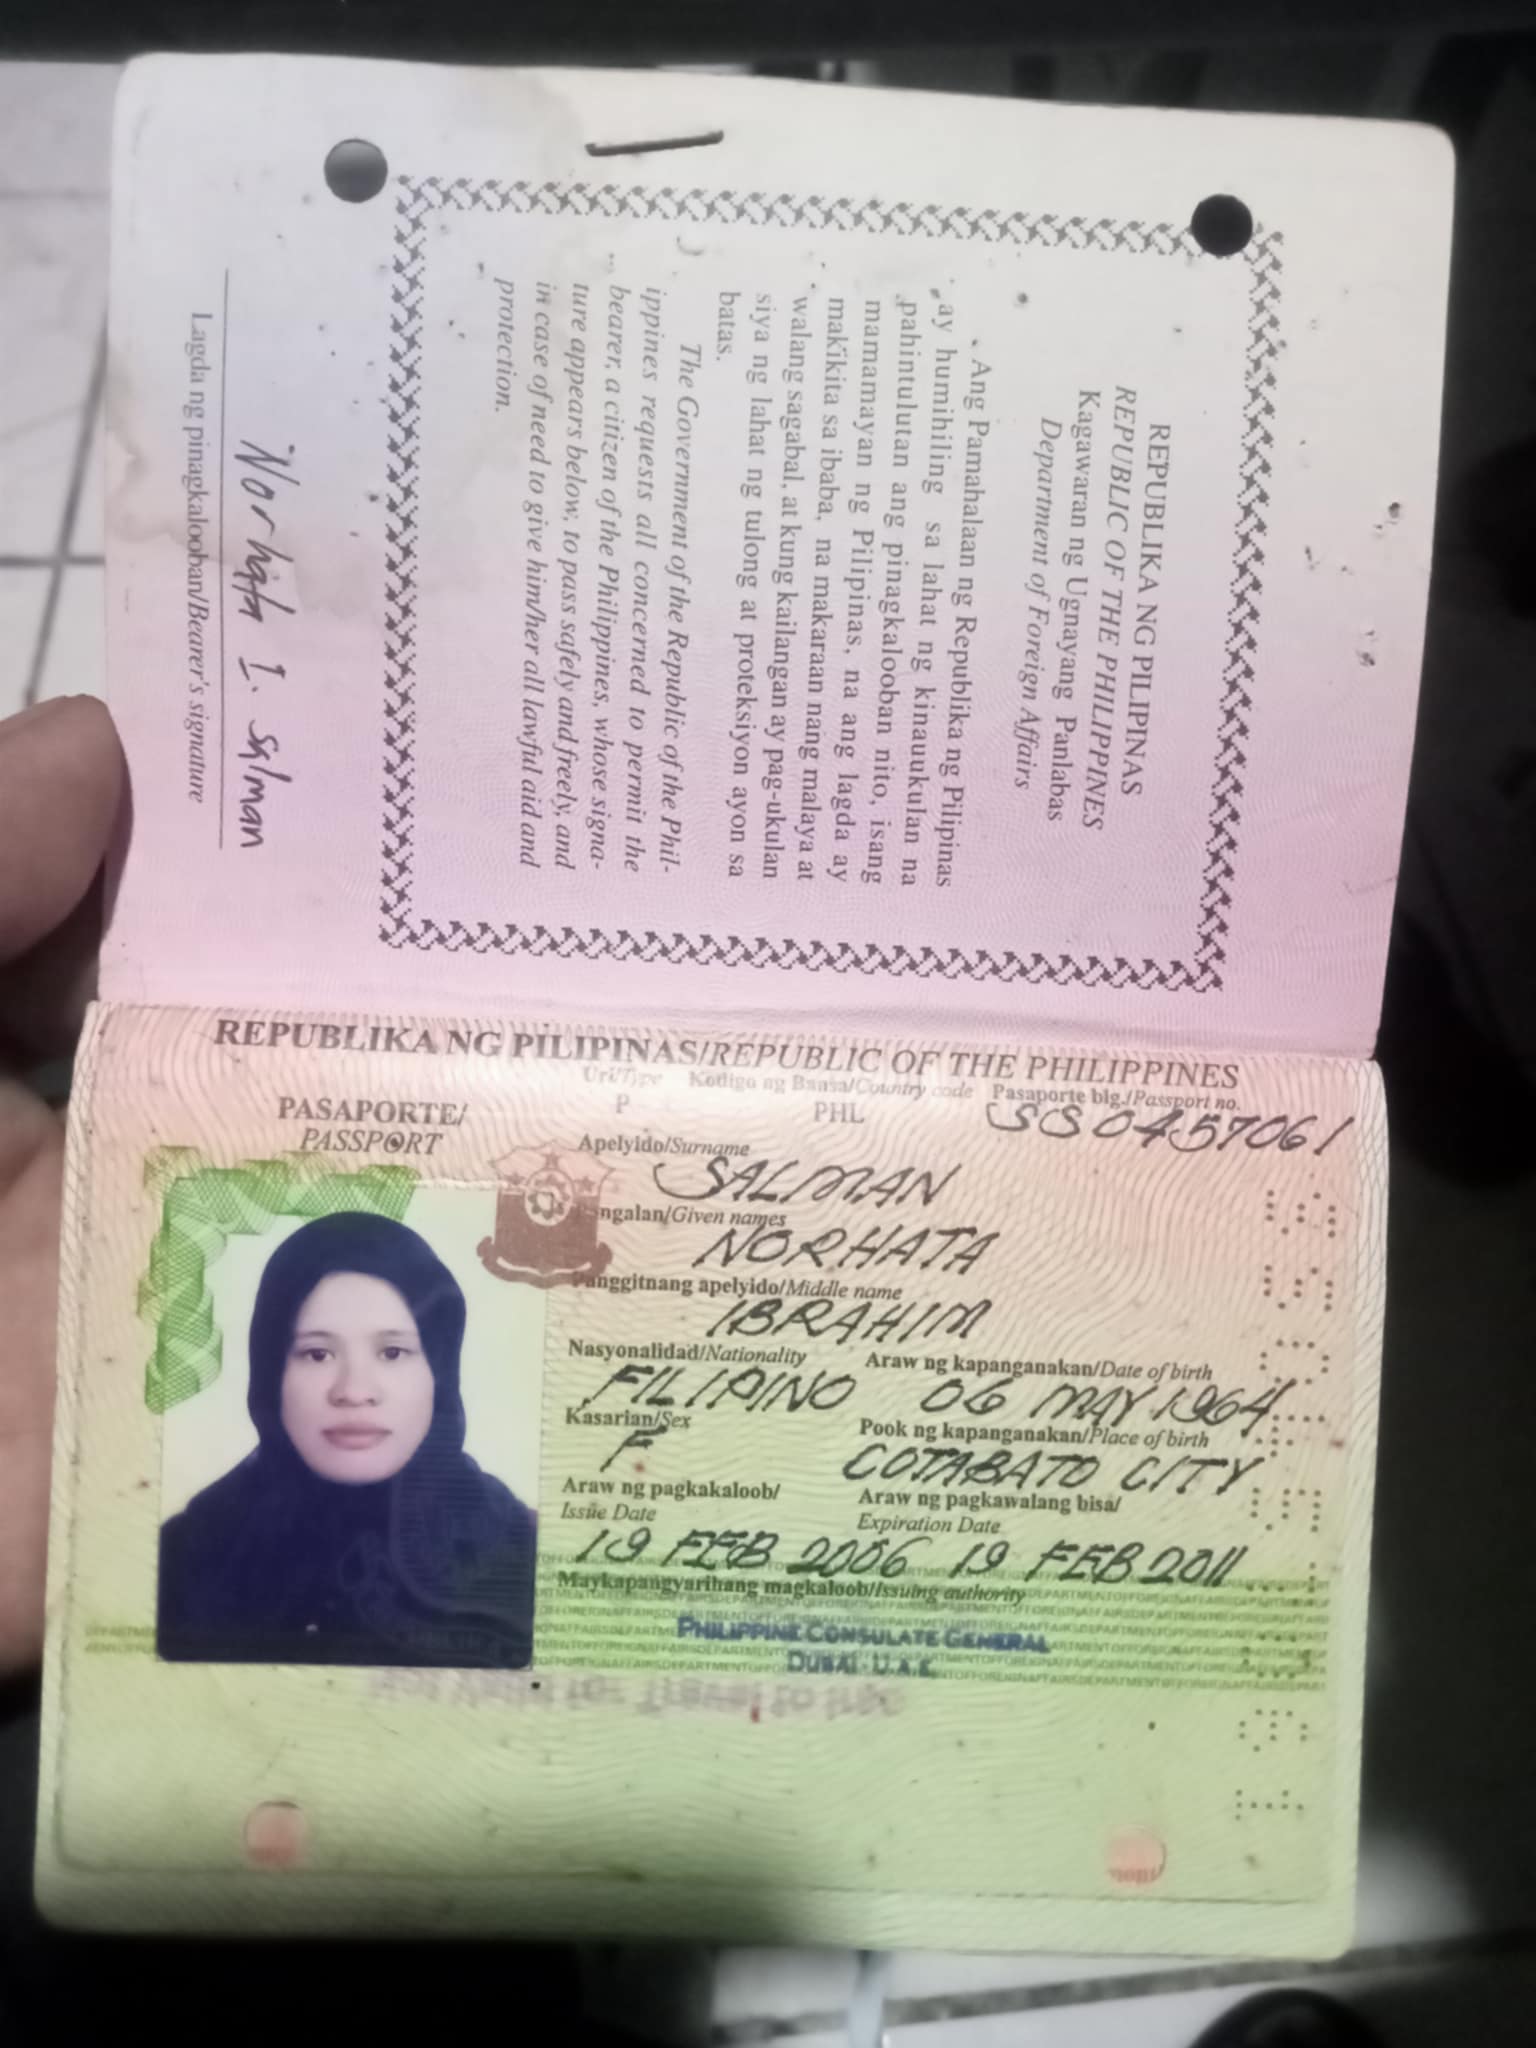 REPUBLIKA NG PILIPINAS
REPUBLIC OF THE PHILIPPINES
Kagawaran ng Ugnayang Panlabas
Department of Foreign Affairs
Ang Pamahalaan ng Republika ng Pilipinas
ay humihiling sa lahat ng kinauukulan na
pahintulutan ang pinagkalooban nito, isang
mamamayan ng Pilipinas, na ang lagda ay
makikita sa ibaba, na makaraan nang malaya at
walang sagabal, at kung kailangan ay pag-ukulan
siya ng lahat ng tulong at proteksiyon ayon sa
batas.
The Government of the Republic of the Phil-
ippines requests all concerned to permit the
bearer, a citizen of the Philippines, whose signa-
ture appears below, to pass safely and freely, and
in case of need to give him/her all lawful aid and
protection.
Norhata I. Salman
Lagda ng pinagkalooban/Bearer's signature
REPUBLIKA NG PILIPINAS/REPUBLIC OF THE PHILIPPINES
PASAPORTE/
PASSPORT
Uri/Type Kodigo ng Bansa/Country code Pasaporte blg./Passport no.
P PHL SS0457061
Apelyido/Surname
SALMAN
Pangalan/Given names
NORHATA
Panggitnang apelyido/Middle name
IBRAHIM
Nasyonalidad/Nationality Araw ng kapanganakan/Date of birth
FILIPINO 06 MAY 1964
Kasarian/Sex Pook ng kapanganakan/Place of birth
F COTABATO CITY
Araw ng pagkakaloob/ Araw ng pagkawalang bisa/
Issue Date Expiration Date
19 FEB 2006 19 FEB 2011
Maykapangyarihang magkaloob/Issuing authority
PHILIPPINE CONSULATE GENERAL
DUBAI - U.A.E.